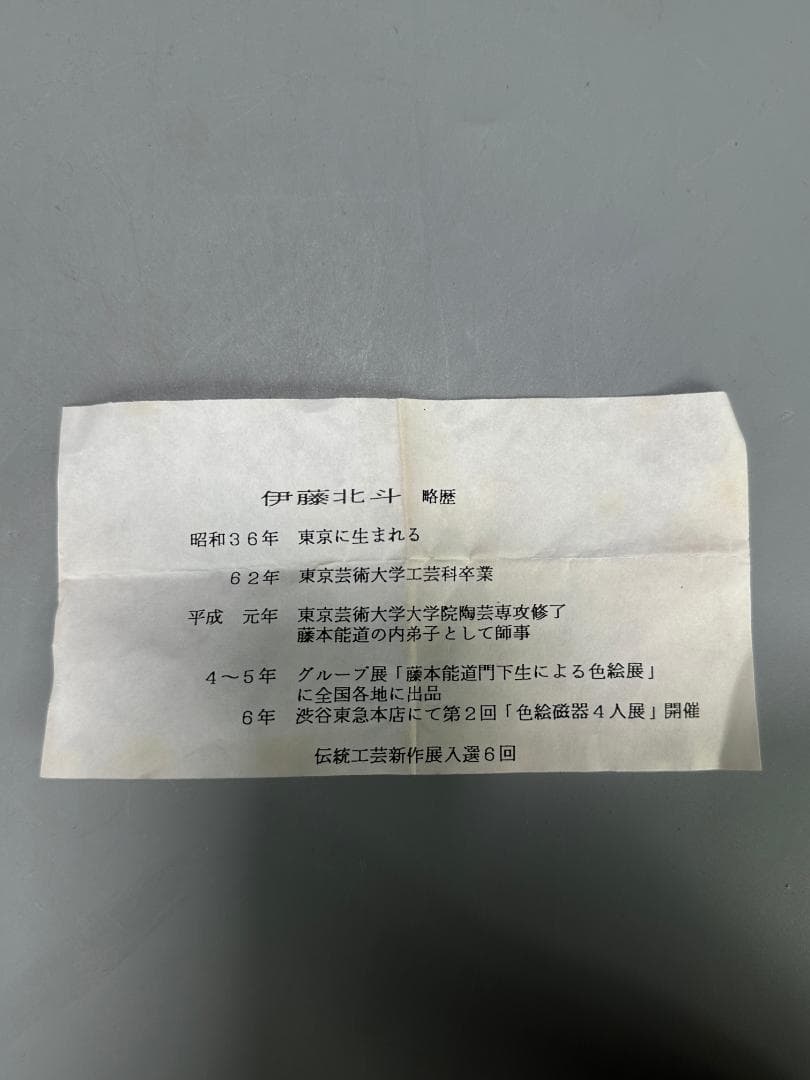 伊藤北斗 略歴
昭和３６年 東京に生まれる
６２年 東京芸術大学工芸科卒業
平成 元年 東京芸術大学大学院陶芸専攻修了
藤本能道の内弟子として師事
４～５年 グループ展「藤本能道門下生による色絵展」
に全国各地に出品
６年 渋谷東急本店にて第２回「色絵磁器４人展」開催
伝統工芸新作展入選６回